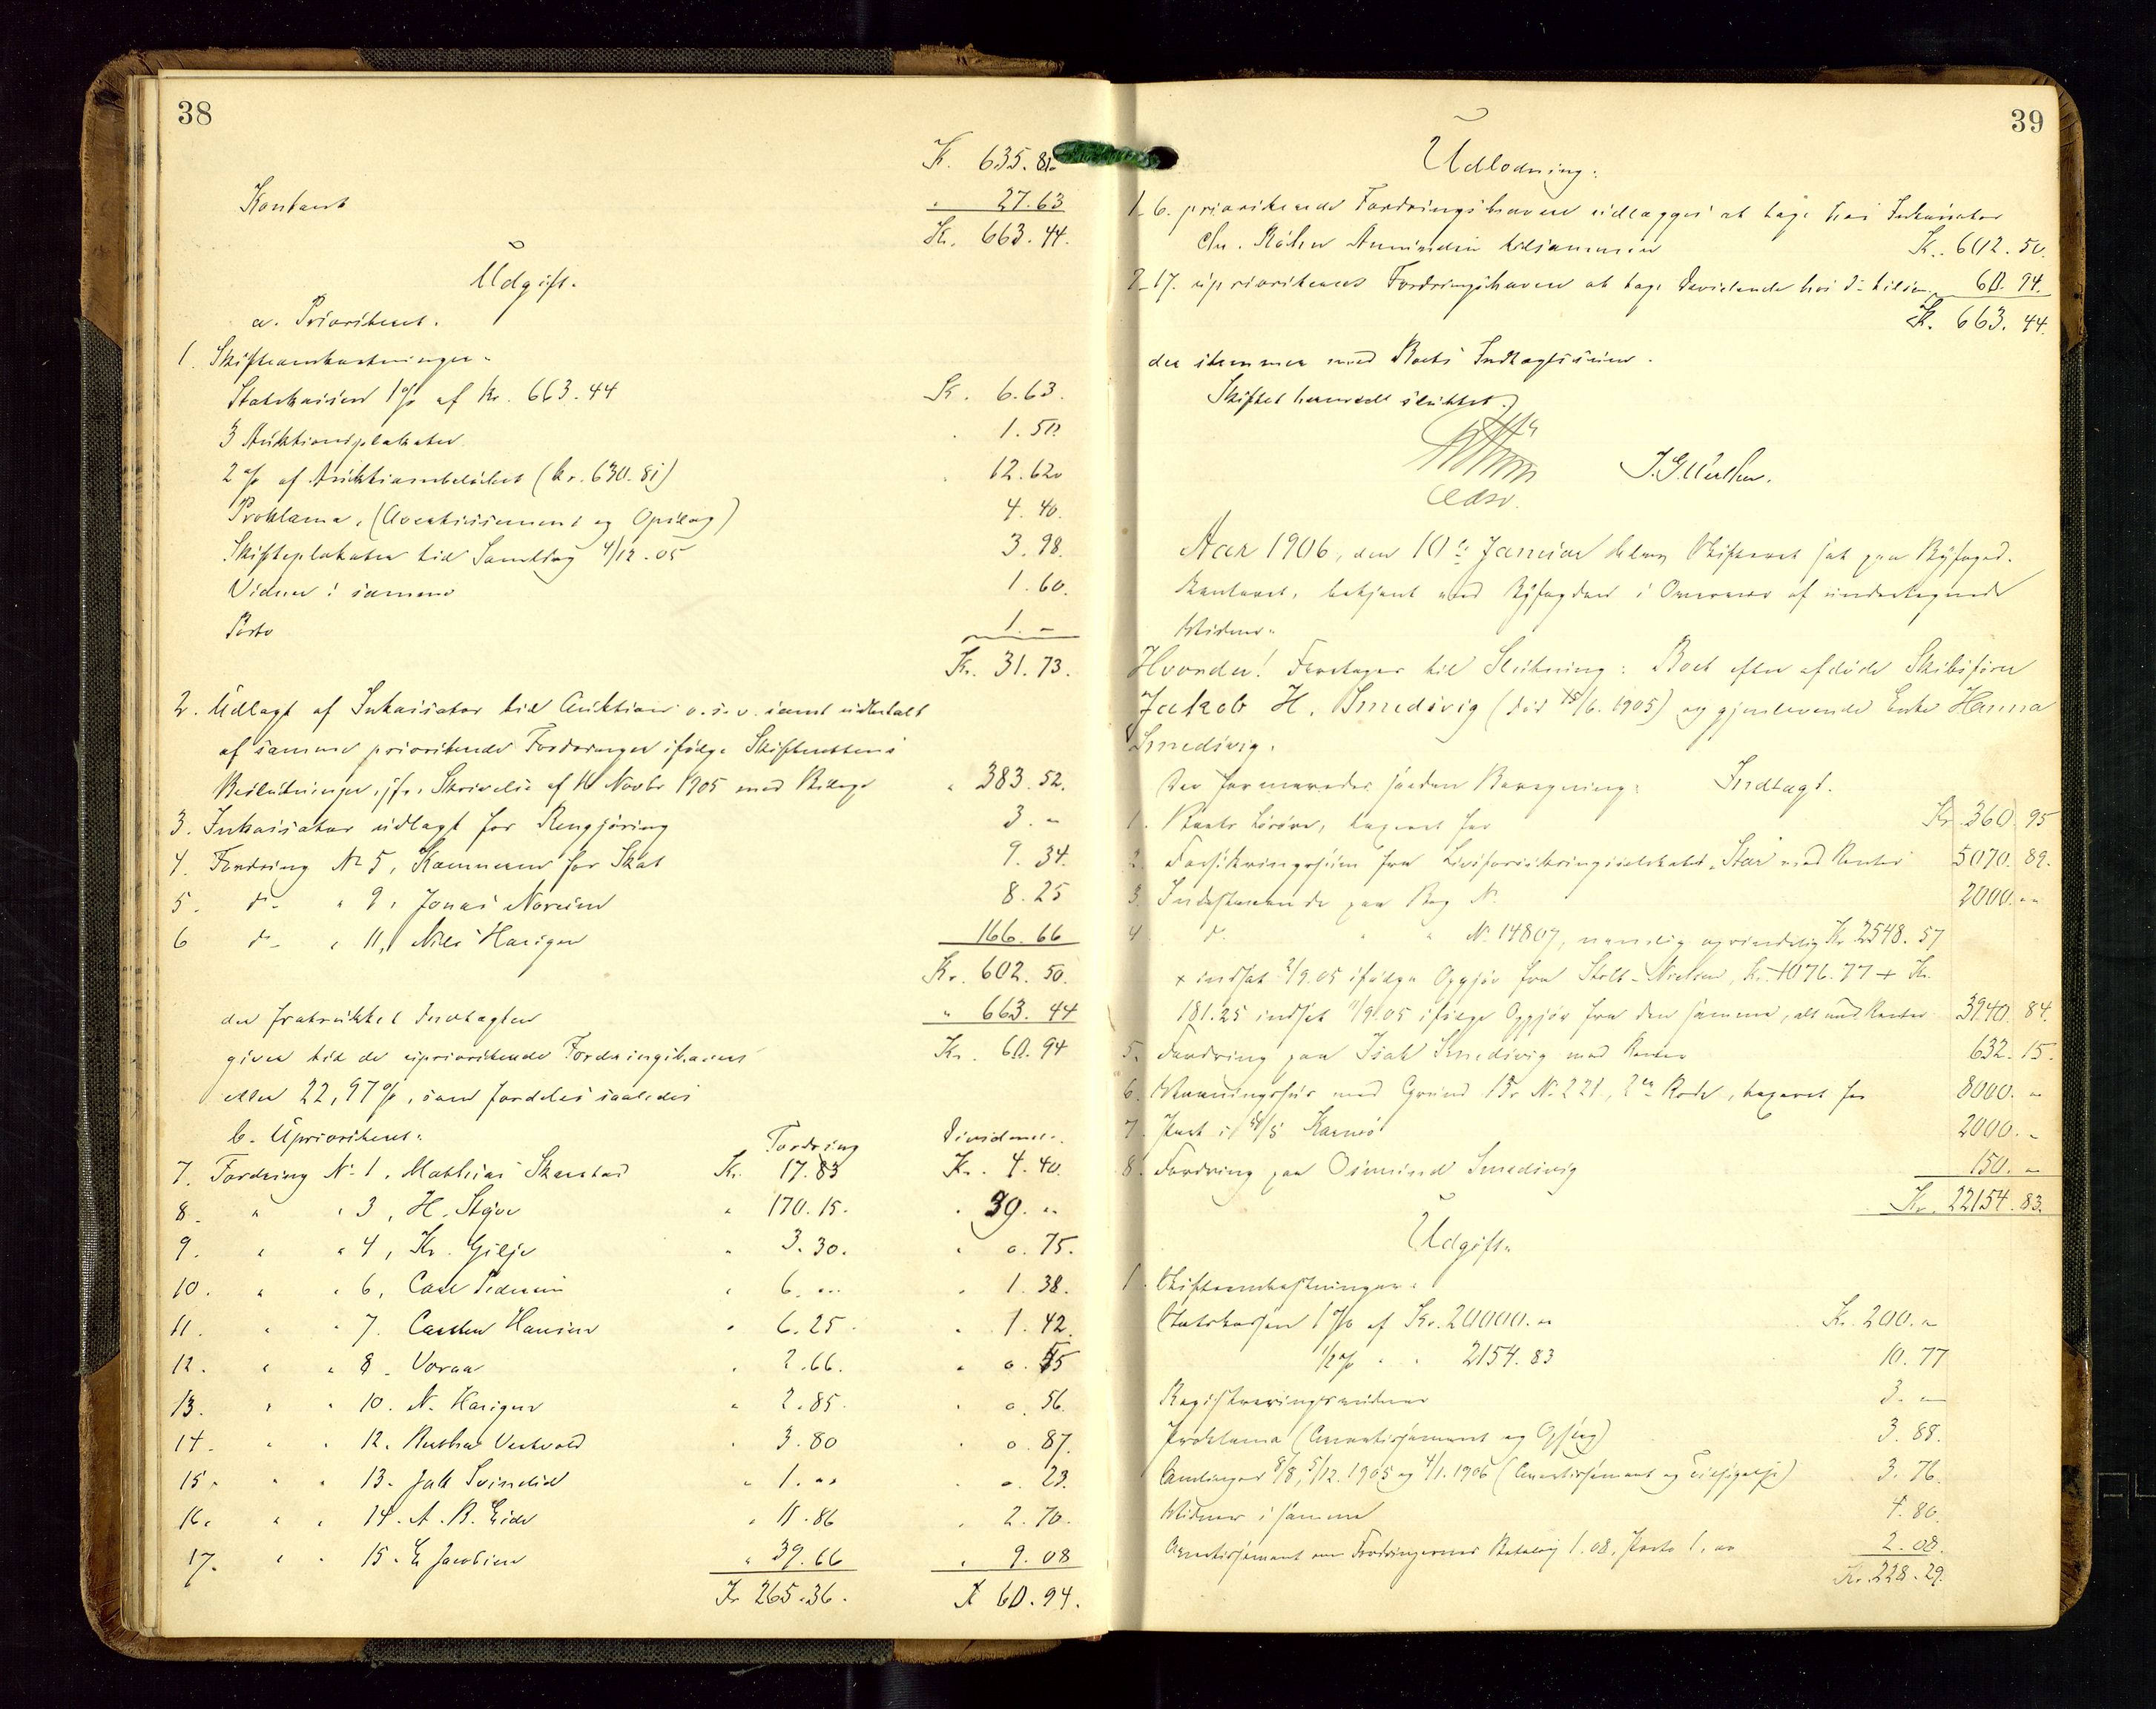 38
Kr. 635.81
Kontant " 27.63
Kr. 663.44.
Udgift.
a. Prioriteret.
1. Skifteomkostninger.
Statskassen 1% af Kr. 663.44 Kr. 6.63.
3 Auktionsplakater 1.50
2% af Auktionsbeløbet (Kr. 630.81) 12.62
Proklama, (Avertissement og Opslag) 4.40.
Skifteplakater til Samling 4/12.05 3.98.
Vidner i samme 1.60.
Porto 1.-
Kr. 31.73.
2. Udlagt af Inkassator til Auktion o.s.v. samt udbetalt
af samme prioriterede Fordringer ifølge Skifterettens
Beslutninger, jfr. Skrivelse af 16 Novbr 1905 med Bilage " 383.52.
3. Inkassator udlagt for Rengjøring 3.-
4. Fordring No 5, Kæmneren for Skat 9.34.
5. do " 9, Jonas Norsen 8.25
6 do " 11, Nils Hansen 166.66
Kr. 602.50.
der fratrukket Indtægten " 663.44
giver til de uprioriterede Fordringshavere Kr. 60.94
eller 22,97%, som fordeles saaledes
b. Uprioriteret: Fordring Dividende.
7. Fordring No 1. Mathias Skarstad Kr. 17.83 Kr. 4.40.
8. " " 3, H. Støve " 170.15. " 39."
9. " " 4, Kr. Gilje " 3.30. " 0.75.
10. " " 6, Carl Pedersen " 6."" " 1.38.
11. " " 7. Carsten Hansen " 6.25 " 1.42.
12. " " 8. Voraa " 2.66. " 0.55
13. " " 10. N. Hansen " 2.85. " 0.56.
14. " " 12. Vestvold " 3.80 " 0.87.
15. " " 13. Jak Svindlid " 1."" " 0.23.
16. " " 14. A. B. Eide " 11.86 " 2.70.
17. " " 15. E. Jacobsen " 39.66 " 9.08
Kr 265.36. Kr 60.94.
39
Udlodning:
1-6. prioriterede Fordringshavere udlægges at tage hos Inkassator
Chr. Amundsen tilsammen Kr. 602.50.
7-17. uprioriterede Fordringshavere at tage Dividende hos do tilsm. 60.94.
Kr. 663.44.
der stemmer med Boets Indtægtssum.
Skiftet hermed sluttet.
Edsv.
Aar 1906, den 10de Januar blev Skifteret sat paa Byfoged-
kontoret, betjent ved Byfogden i Overvær af undertegnede
Vidner.
Hvorda! Foretages til Slutning: Boet efter afdøde Skibsfører
Jakob H. Smedsvig (død 15/6.1905) og gjenlevende Enke Hanna
Smedsvig.
Der formeredes saadan Beregning: Indtægt.
1. Boets Løsøre, taxeret for Kr. 360.95
2. Forsikringssum fra Livsforsikringsselskabet "Star" med Renter 5070.89.
3. Indestaaende paa Bog No 2000.""
4 do " " No 14807, nemlig oprindelig Kr 2548.57
+ indsat 2/9.05 ifølge Opgjør fra Stolt-Nielsen, Kr. 1076.77 + Kr.
181.25 indsat 11/9.05 ifølge Opgjør fra den samme, alt med Renter 3940.84.
5. Fordring paa Isak Smedsvig med Renter 632.15.
6. Vaaningshus med Grund Br. No 221, 2en Rode, taxeret for 8000.""
7. Part i 4/5 Karmø 2000.-
8. Fordring paa Osmund Smedsvig 150.""
Kr. 22154.83.
Udgift.
1. Skifteomkostninger.
Statskassen 1% af Kr. 20000."" Kr. 200.""
1/2% " " 2154.83 10.77
Registreringsvidner 3.""
Proklama (Avertissement og Opslag) 3.88.
Samlinger 8/8, 5/12.1905 og 4/1.1906 (Avertissement og Tilsigelse) 3.76.
Vidner i samme 4.80.
Avertissement om Fordringernes Betaling 1.08, Porto 1,"" 2.08.
Kr. 228.29.